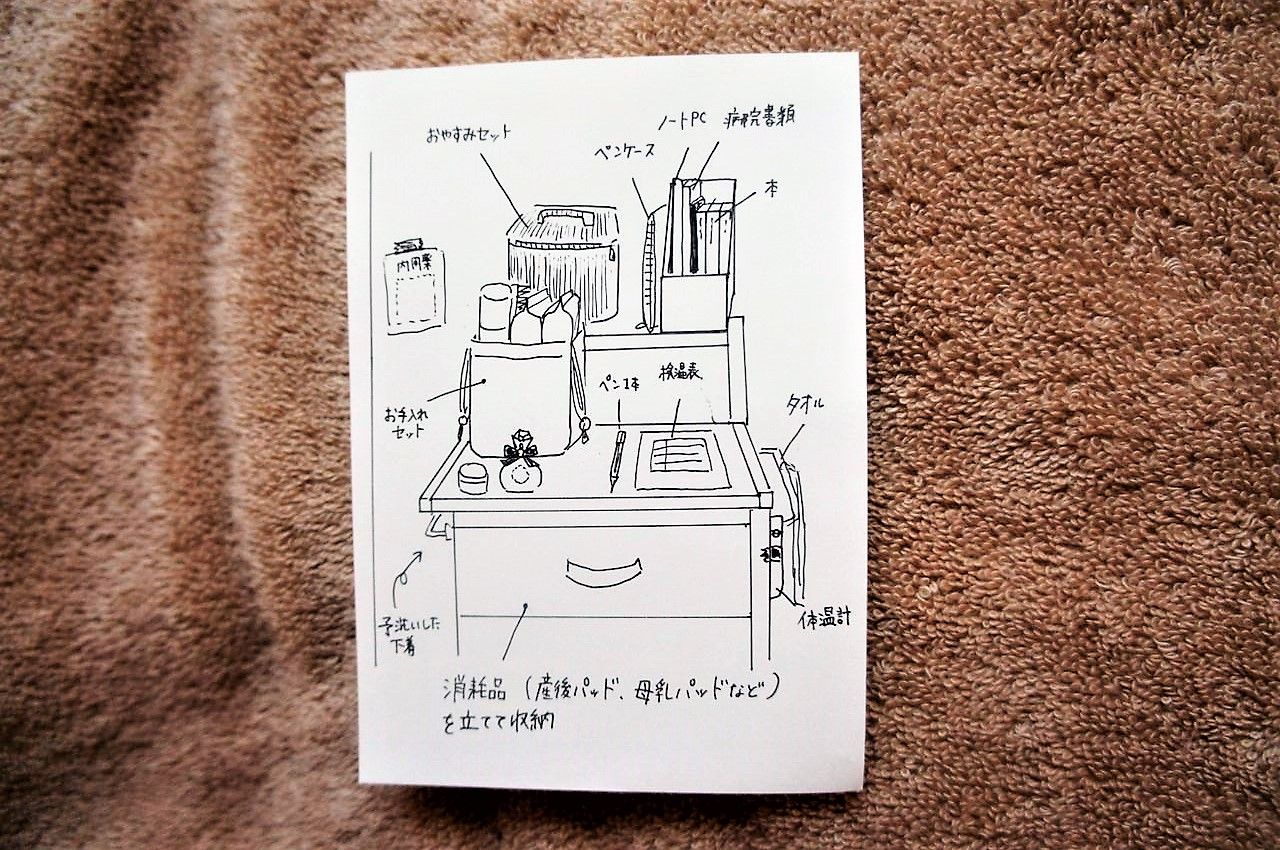 おやすみセット
ペンケース
ノートPC
病院書類
本
内用薬
お手入れ
セット
ペン1本
検温表
タオル
予洗いした
下着
体温計
消耗品(産後パッド、母乳パッドなど)
を立てて収納